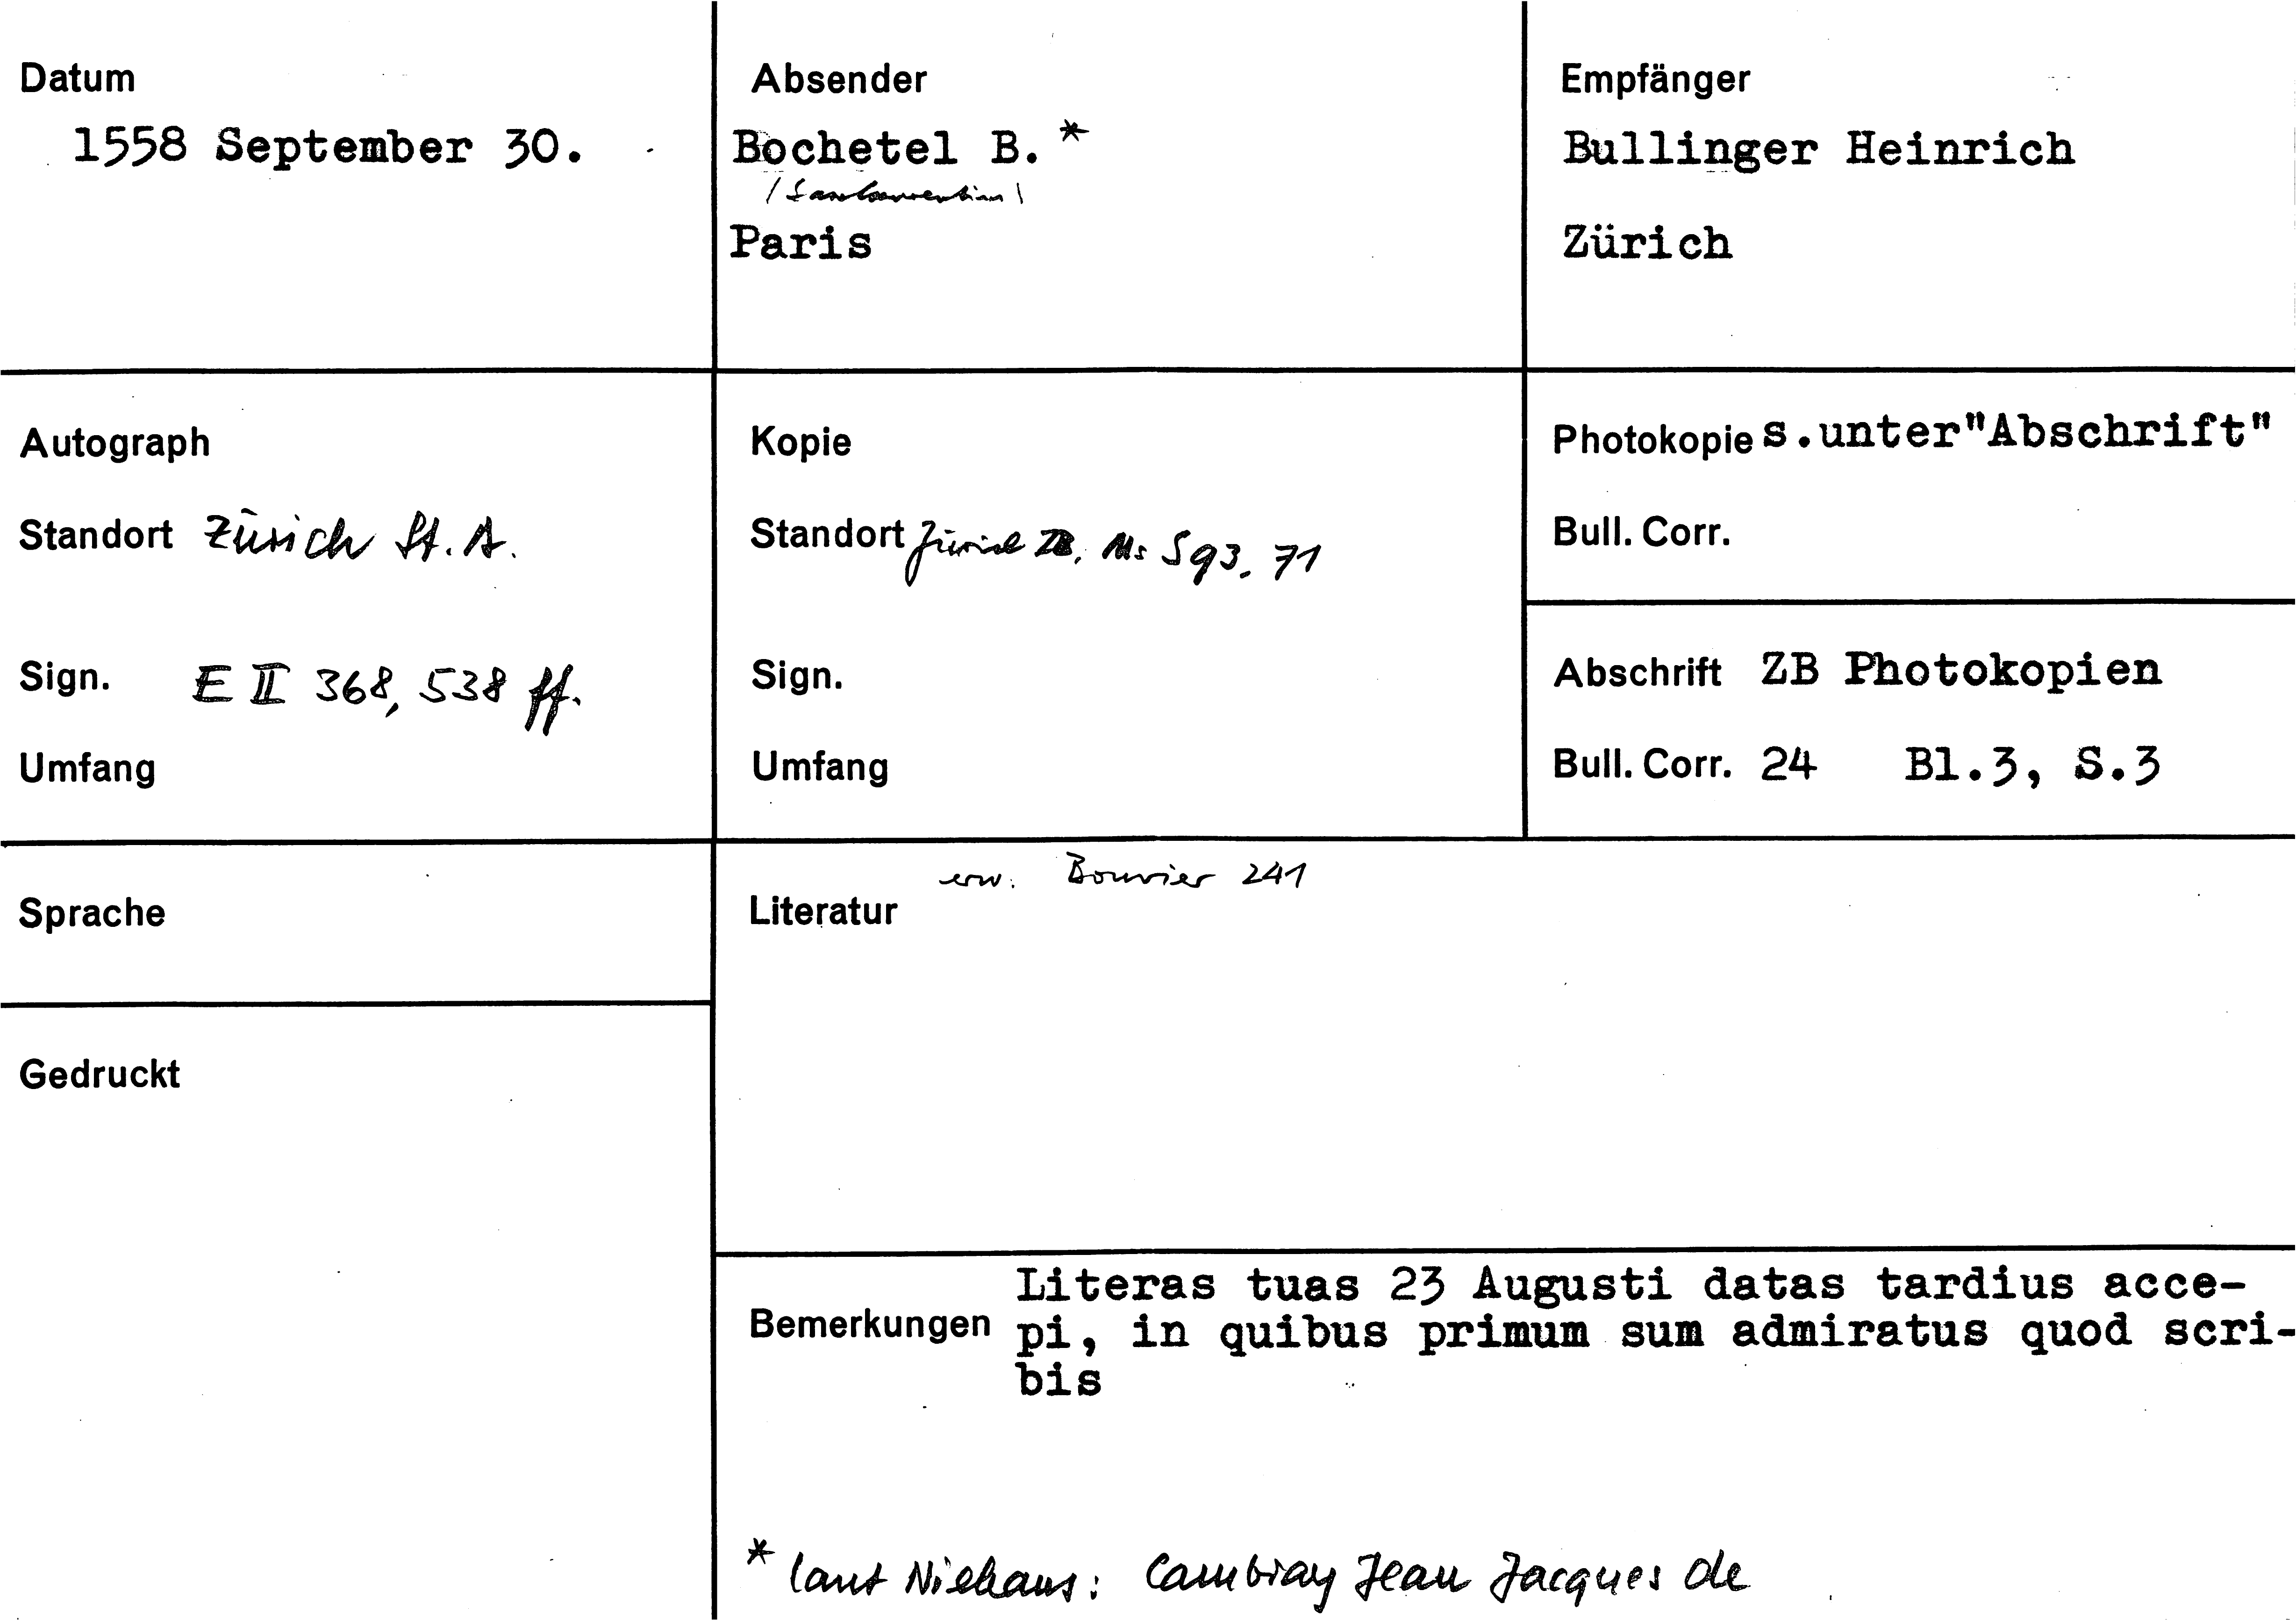 Datum
1558 September 30.
Absender
Bochetel B. *
Paris
Empfänger
Bullinger Heinrich
Zürich
Autograph
Standort Zürich St. A.
Sign. E II 368, 538 ff.
Umfang
Kopie
Standort Zürich ZB, Ms S 93, 71
Sign.
Umfang
Photokopie s.unter"Abschrift"
Bull. Corr.
Abschrift ZB Photokopien
Bull. Corr. 24 Bl.3, S.3
Sprache
Gedruckt
erw. Bouvier 241
Literatur
Literas tuas 23 Augusti datas tardius acce-
Bemerkungen pi, in quibus primum sum admiratus quod scri-
bis
* laut Niehaus: Cambray Jean Jacques de